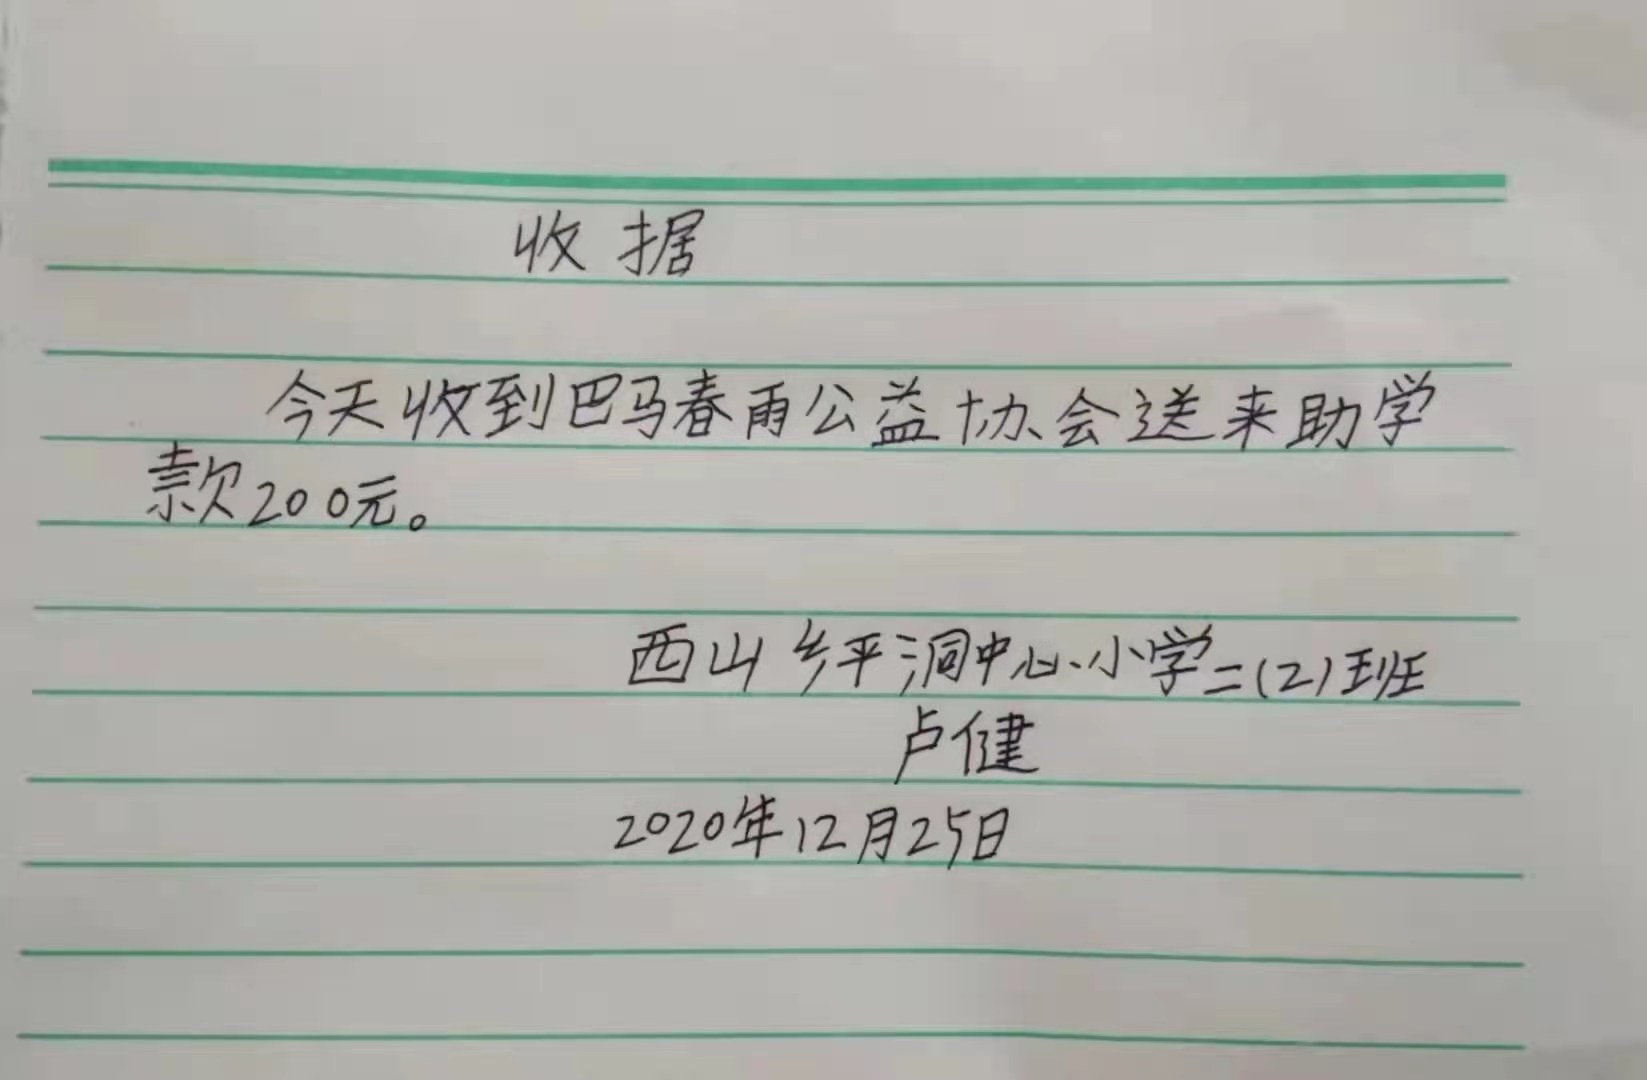 收据
今天收到巴马春雨公益协会送来助学
款200元。
西山乡平洞中心小学二(2)班
卢健
2020年12月25日